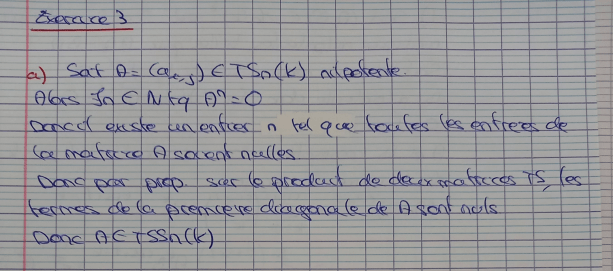 Exercice 3
a) Soit A = (ai,j) ∈ TSn(K) nilpotente.
Alors ∃n ∈ N tq Aⁿ = 0
Donc il existe un entier n tel que toutes les entrées de
la matrice A soient nulles.
Donc par prop. sur le produit de deux matrices TS, les
termes de la premiere diagonale de A sont nuls
Donc A ∈ TSSn(K)